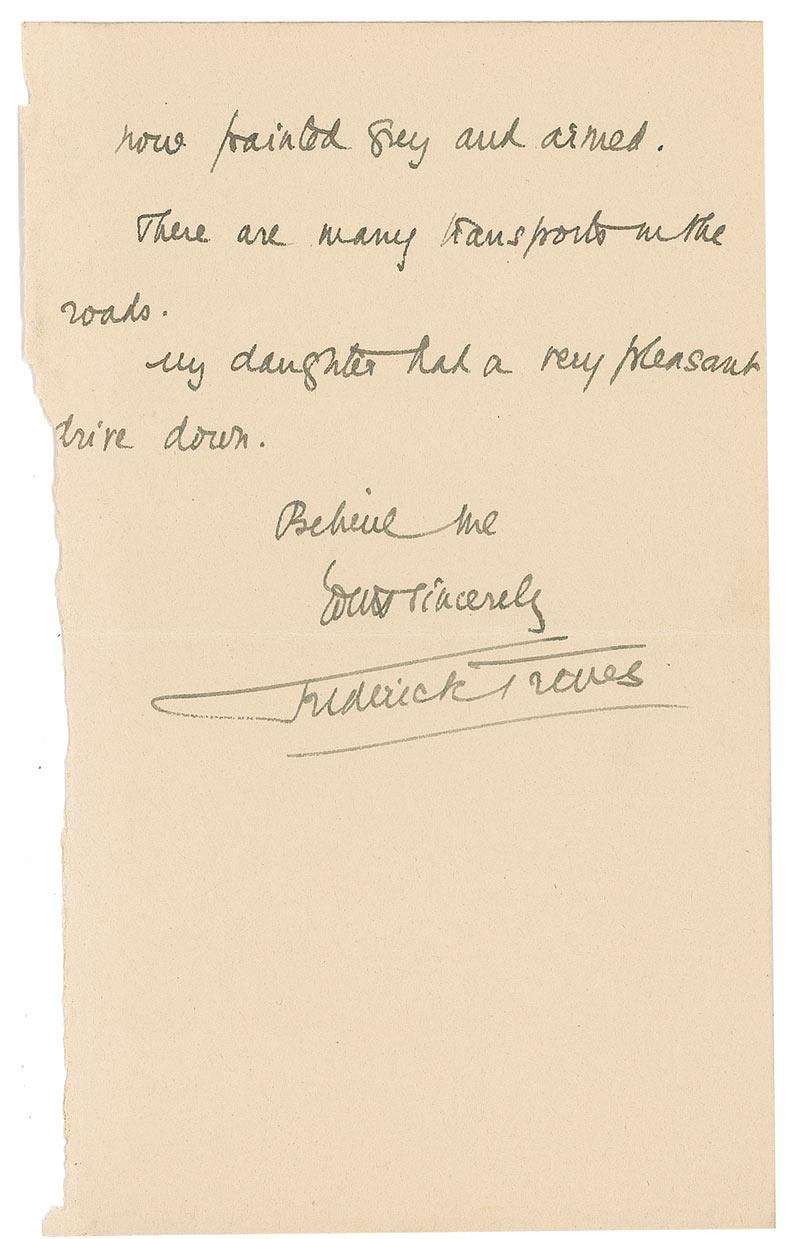 now painted grey and armed.
There are many transports in the
roads.
My daughter had a very pleasant
drive down.
Believe me
Yours sincerely
Frederick Treves